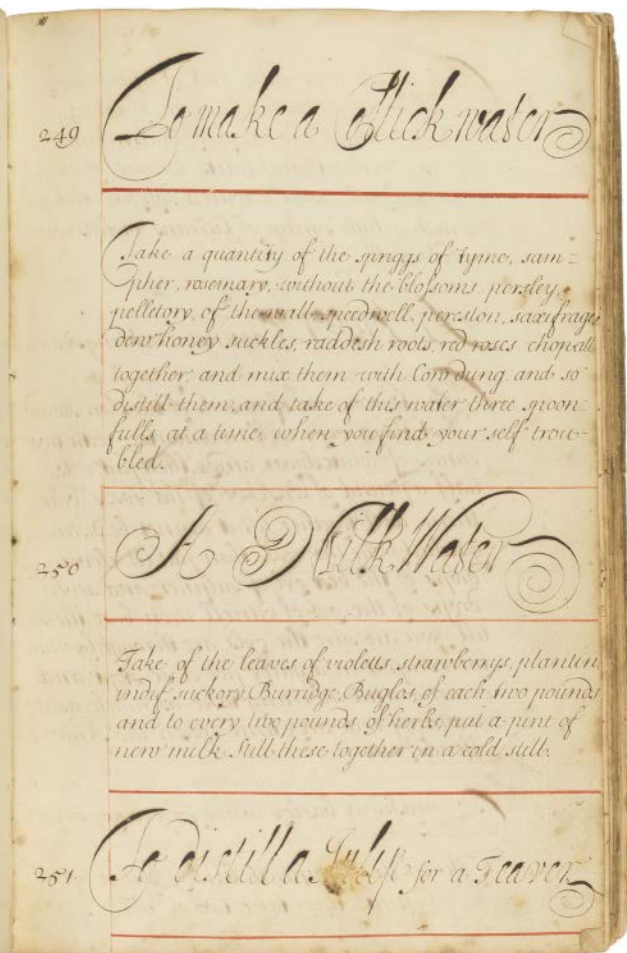 249 To make a Collick water
Take a quantity of the spriggs of tyme, sam=
pher, rosemary, without the blossoms persley,
pelletory, of the wall, speedwell, pereston, saxifrage
dew honey suckles, raddesh roots, red roses chop all
together, and mix them with Cow dung, and so
distill them, and take of this water three spoon=
fulls at a time, when you find your self trou=
bled.
250 A Milk Water
Take of the leaves of violetts, strawberrys, plantin
indif, suckory, Burridge, Buglos, of each two pounds
and to every two pounds of herbs, put a pint of
new milk Still these together in a cold still.
251 To distill a Julip for a Feaver